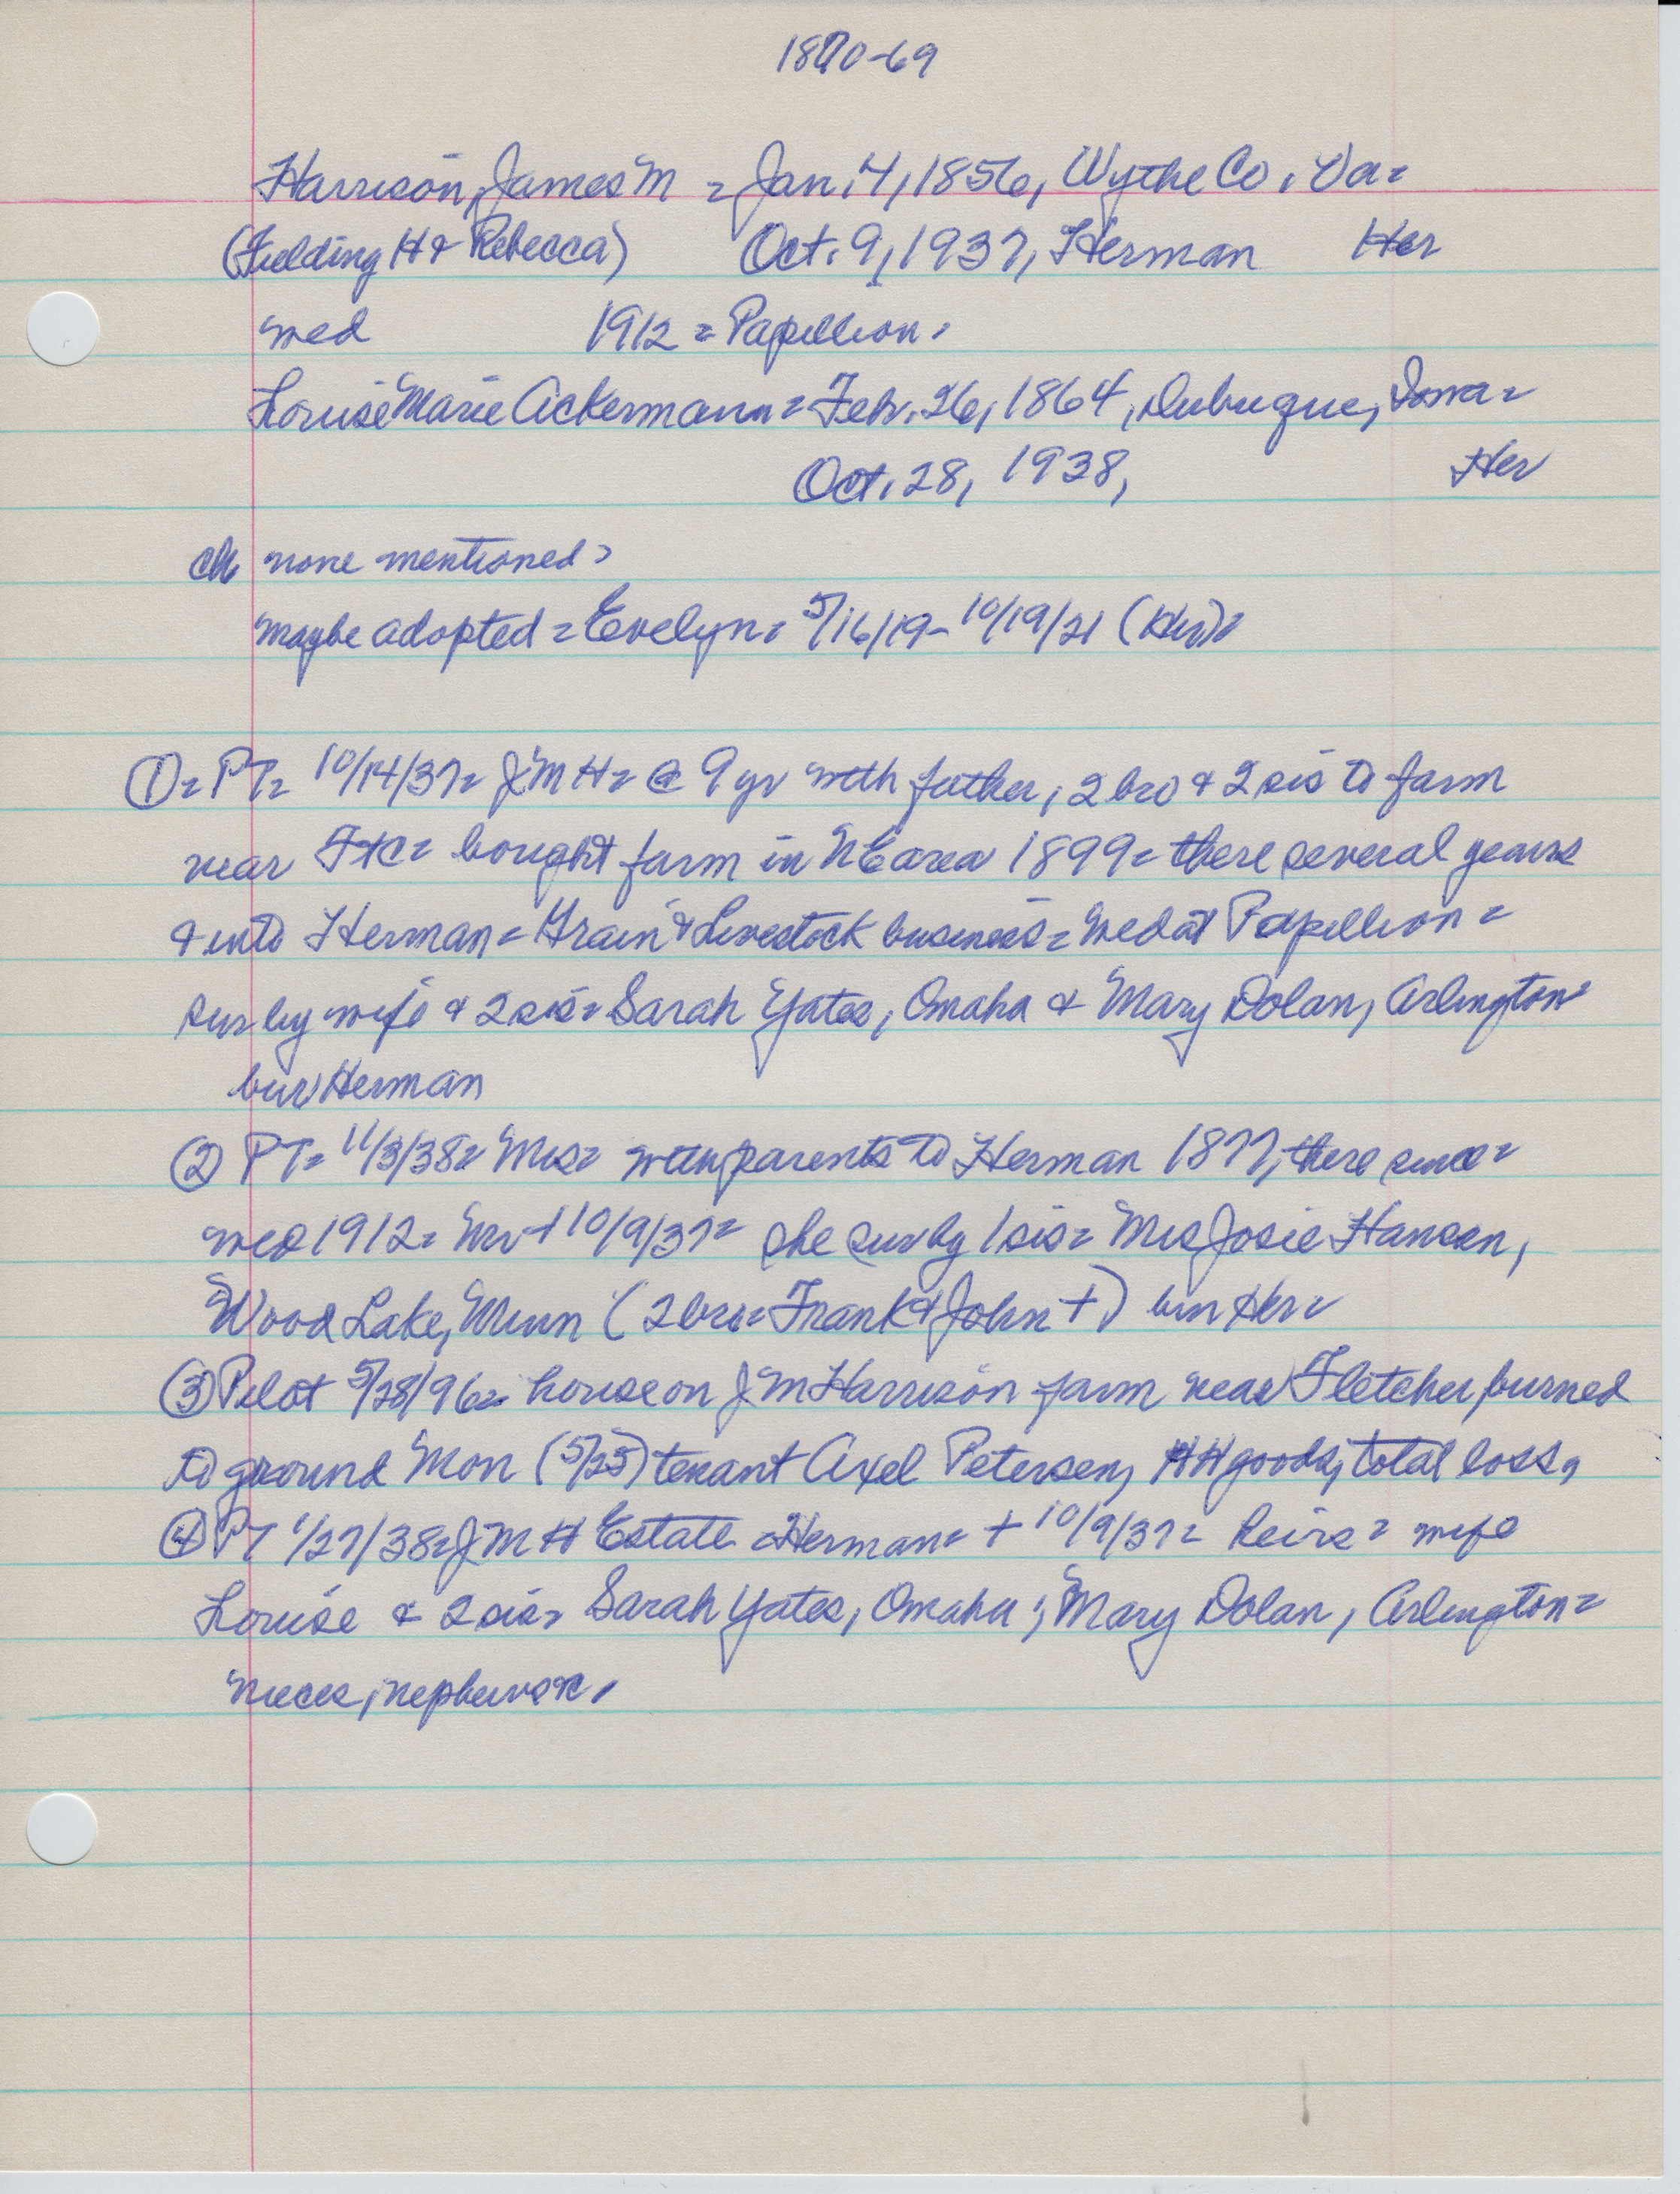 1870-69
Harrison, James M = Jan. 4, 1856, Wythe Co, Va =
(Fielding H & Rebecca) Oct. 9, 1937, Herman Her
wed 1912 = Papillion,
Louise Marie Ackermann = Feb. 26, 1864, Dubuque, Iowa =
Oct. 28, 1938, Her
ch none mentioned =
maybe adopted = Evelyn = 5/16/19 - 10/19/21 (Her) =
① = PT = 10/14/37 = JMH = @ 9 yr with father, 2 bro & 2 sis to farm
near FtC = bought farm in NE area 1899 = there several years
& into Herman = Grain & Livestock business = wed at Papillion =
sur by wife & 2 sis = Sarah Yates, Omaha & Mary Dolan, Arlington =
bur Herman
② PT = 11/3/38 = Mrs = with parents to Herman 1877, there since =
wed 1912 = Mr + 10/9/37 = she sur by 1 sis = Mrs Josie Hansen,
Wood Lake, Minn (2 bro = Frank & John +) bur Her =
③ Pilot 5/28/96 = house on J M Harrison farm near Fletcher, burned
to ground Mon (5/25) tenant Axel Petersen, HH goods, total loss,
④ PT 1/27/38 = JMH Estate = Herman = + 10/9/37 = heirs = wife
Louise & 2 sis = Sarah Yates, Omaha; Mary Dolan, Arlington =
nieces, nephews